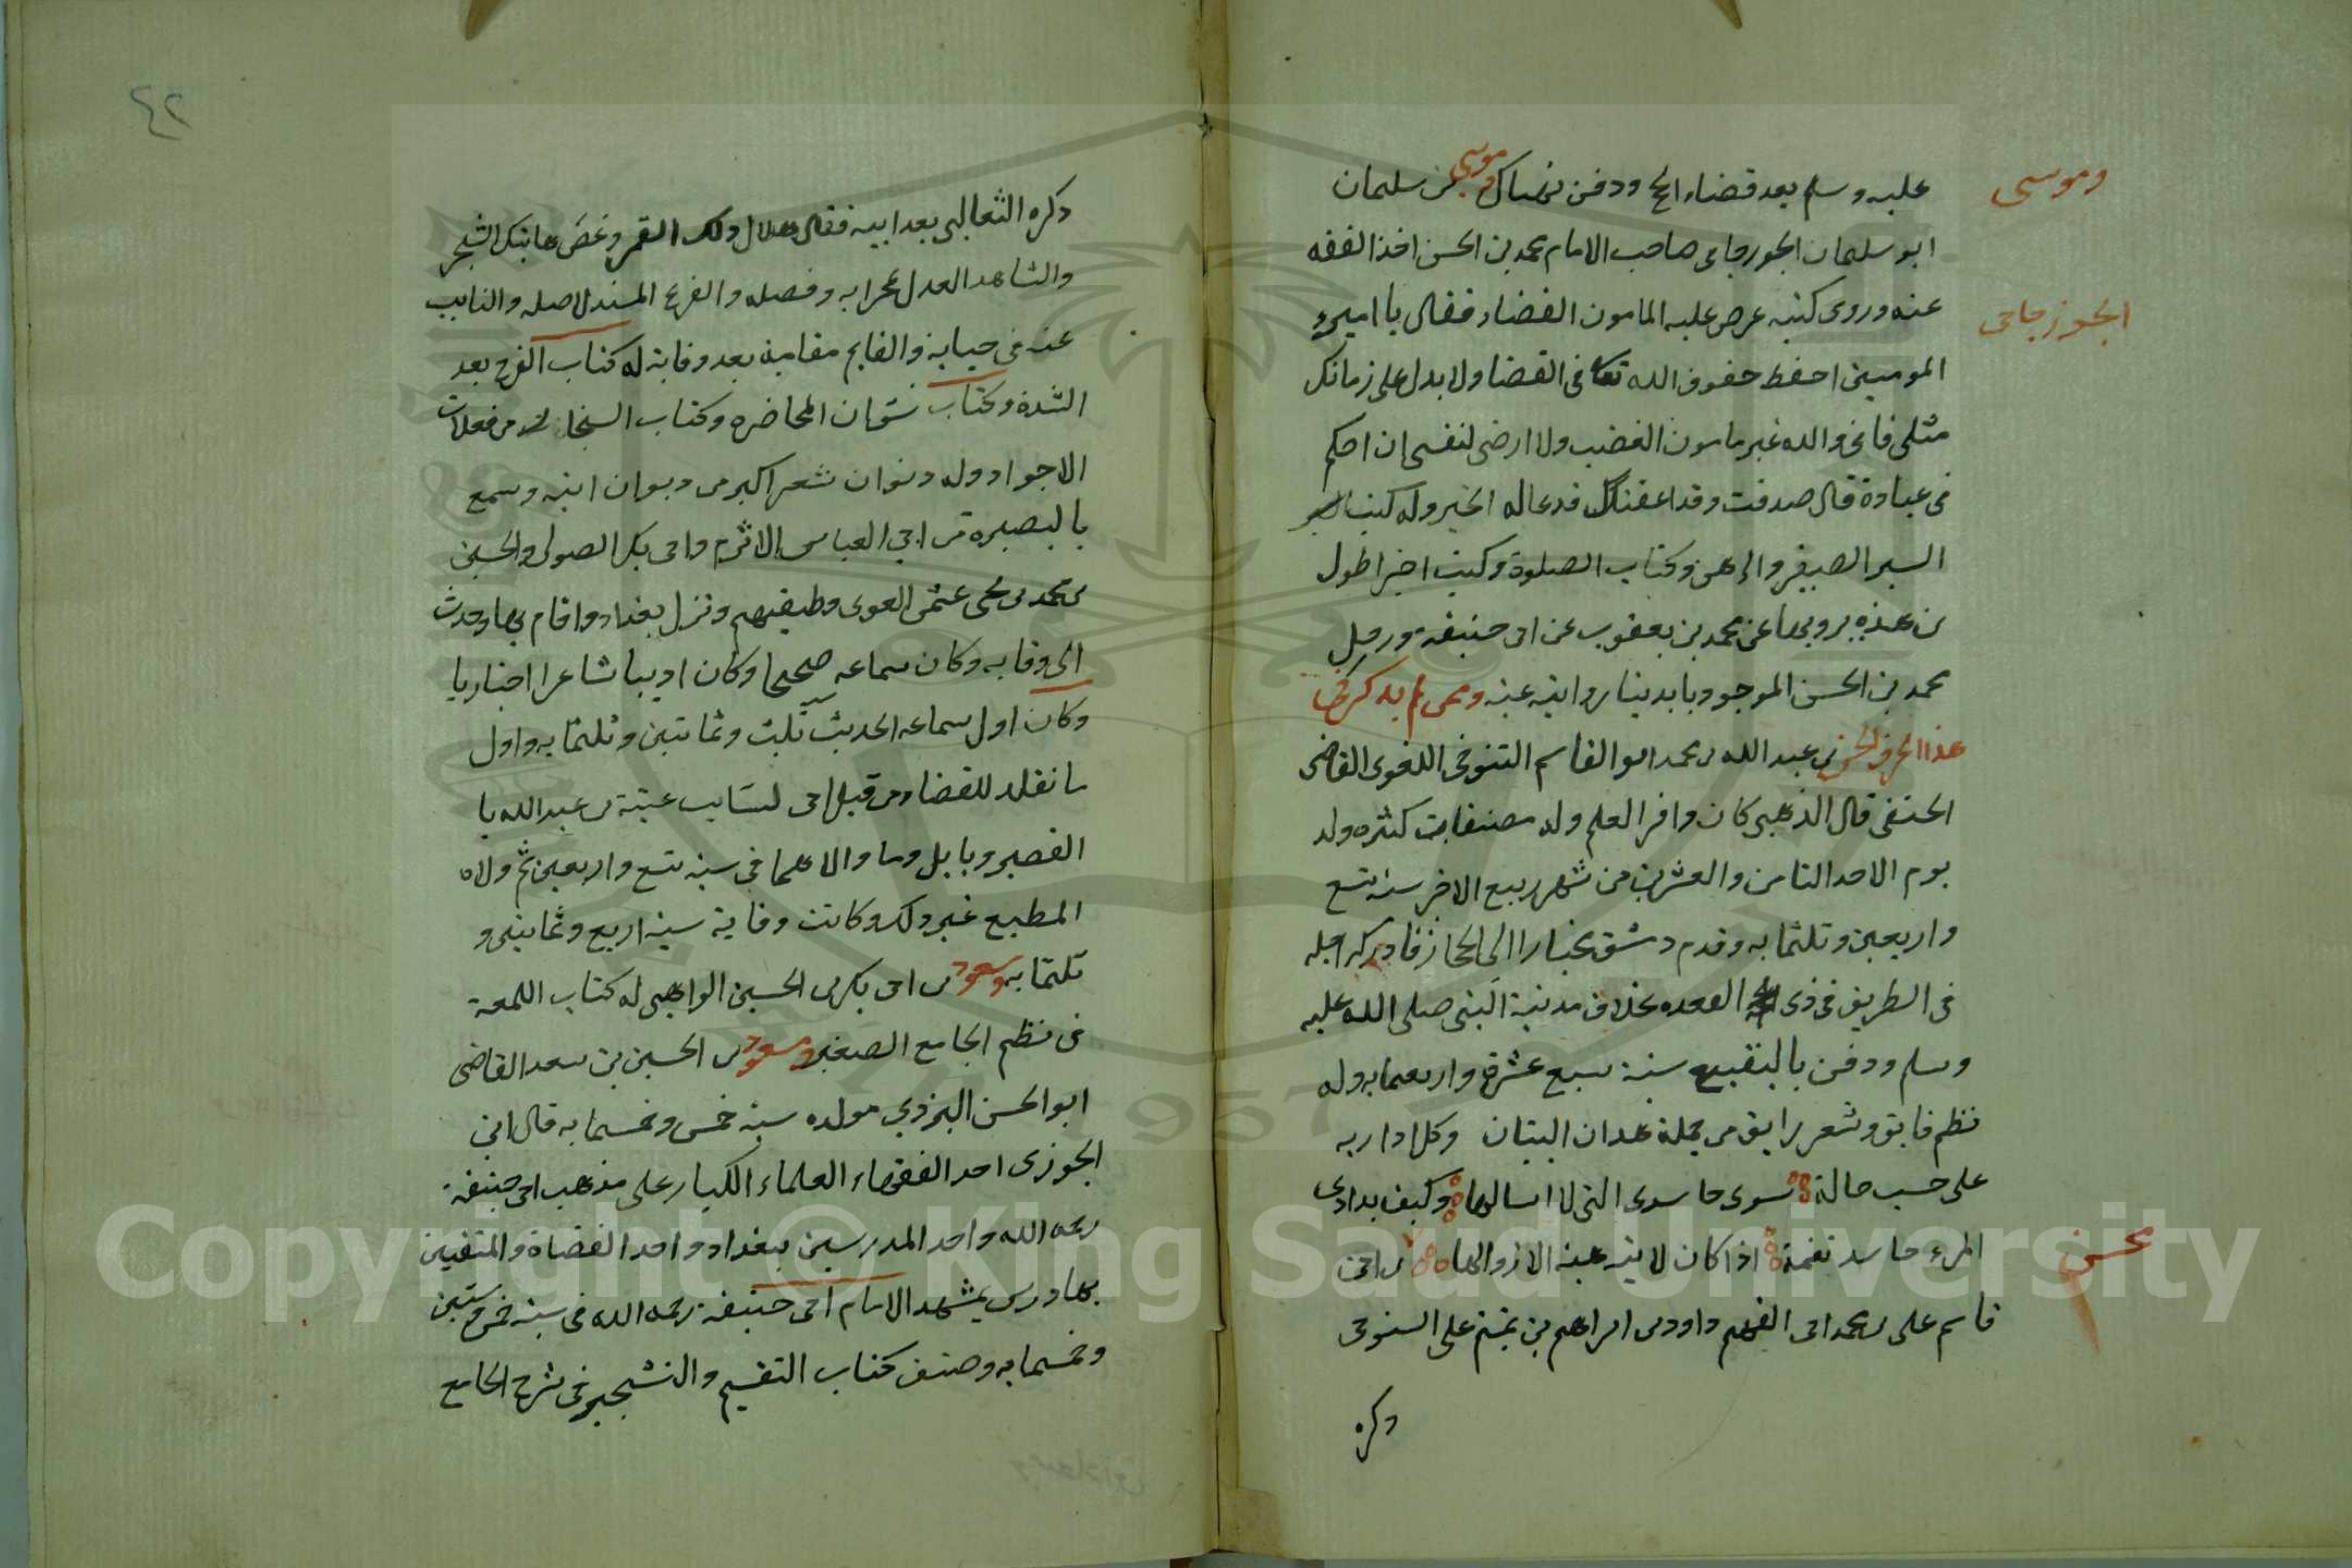 وموسى
عليه وسلم بعد قضاء الحج ودفن هناك وموسى بن سليمان
ابو سليمان الجورجاني صاحب الامام محمد بن الحسن اخذ الفقه
الجوزجاني
عنه وروى كتبه عرض عليه المامون القضاء فقال يا امير
المومنين احفظ حقوق الله تعا فى القضا ولا بدل على زمانك
مثلى فانى والله غير مامون الغضب ولا ارضى لنفسى ان احكم
فى عبادة قال صدقت وقد اعفيتك فدعا له الخير وله كتب
السير الصغير والرهن وكتاب الصلوة وكتب اخر اطول
من هذه يرويها عن محمد بن يعقوب عن ابى حنيفة ورجل
محمد بن الحسن الموجود بايدينا روايته عنه وممن لم يذكر فى
هذا الحرف المحسن بن عبد الله بن محمد ابو القاسم التنوخى اللغوى القاضى
الحنفى قال الذهبى كان وافر العلم وله مصنفات كثره ولد
يوم الاحد الثامن والعشرين من شهر ربيع الاخر سنة تسع
واربعين وثلثمايه وقدم دمشق مجتازا الى الحجاز فادركه اجله
فى الطريق فى ذى القعده مدينة النبى صلى الله عليه
وسلم ودفن بالبقيع سنة سبع عشرة واربعمايه وله
نظم فايق وشعر رايق من جملة هذان البيتان وكل اداريه
على حسب حالة سوى حاسدى التى لا اسالها وكيف يدادى
محسن
المرء حاسد نغمة اذا كان لا يرضيه الا زوالها بن ابى
قاسم على بن محمد ابى الفهم داود بن ابراهيم بن تميم على التنوخى
ذكره
٤٢
ذكره الثعالبى بعد ابيه فقال هلال ذلك القمر وغصن هاتيك الشجر
والشاهد العدل بمجد ابيه وفضله والفرع المسند لاصله والنايب
عنه فى حياته والقايم مقامه بعد وفاته له كتاب الفرج بعد
الشدة وكتاب نشوان المحاضره وكتاب المستجاد من فعلات
الاجواد وله ديوان شعر اكبر من ديوان ابيه وسمع
بالبصره من ابى العباس الاثرم وابى بكر الصولى والحسين
بن محمد بن يحيى عثمن وطبقتهم ونزل بغداد واقام بها وحدث
الى وفاته وكان سماعه صحيحا وكان اديبا شاعرا اخباريا
وكان اول سماعه الحديث ثلث وثمانين وثلثمايه واول
ما تقلد للقضاء من قبل ابى لسايب عتبة بن عبد الله با
القصر وبابل وما والاهما فى سنة تسع واربعين ثم ولاه
المطيع غير ذلك وكانت وفاته سنة اربع وثمانين و
ثلثمايه ومسعود بن ابى بكر بن الحسين له كتاب اللمعة
فى نظم الجامع الصغير ومسعود بن الحسين بن سعد القاضى
ابو الحسن اليزدي مولده سنة خمس وخمسمايه قال ابن
الجوزى احد الفقهاء العلماء الكبار على مذهب ابى حنيفة
رحمه الله واحد المدرسين ببغداد واحد القضاة والمتقين
بها ودرس بمشهد الامام ابى حنيفة رحمه الله فى سنة خمس وستين
وخمسمايه وصنف كتاب التقسيم والتشجير فى شرح الجامع
Copyright © King Saud University
1957